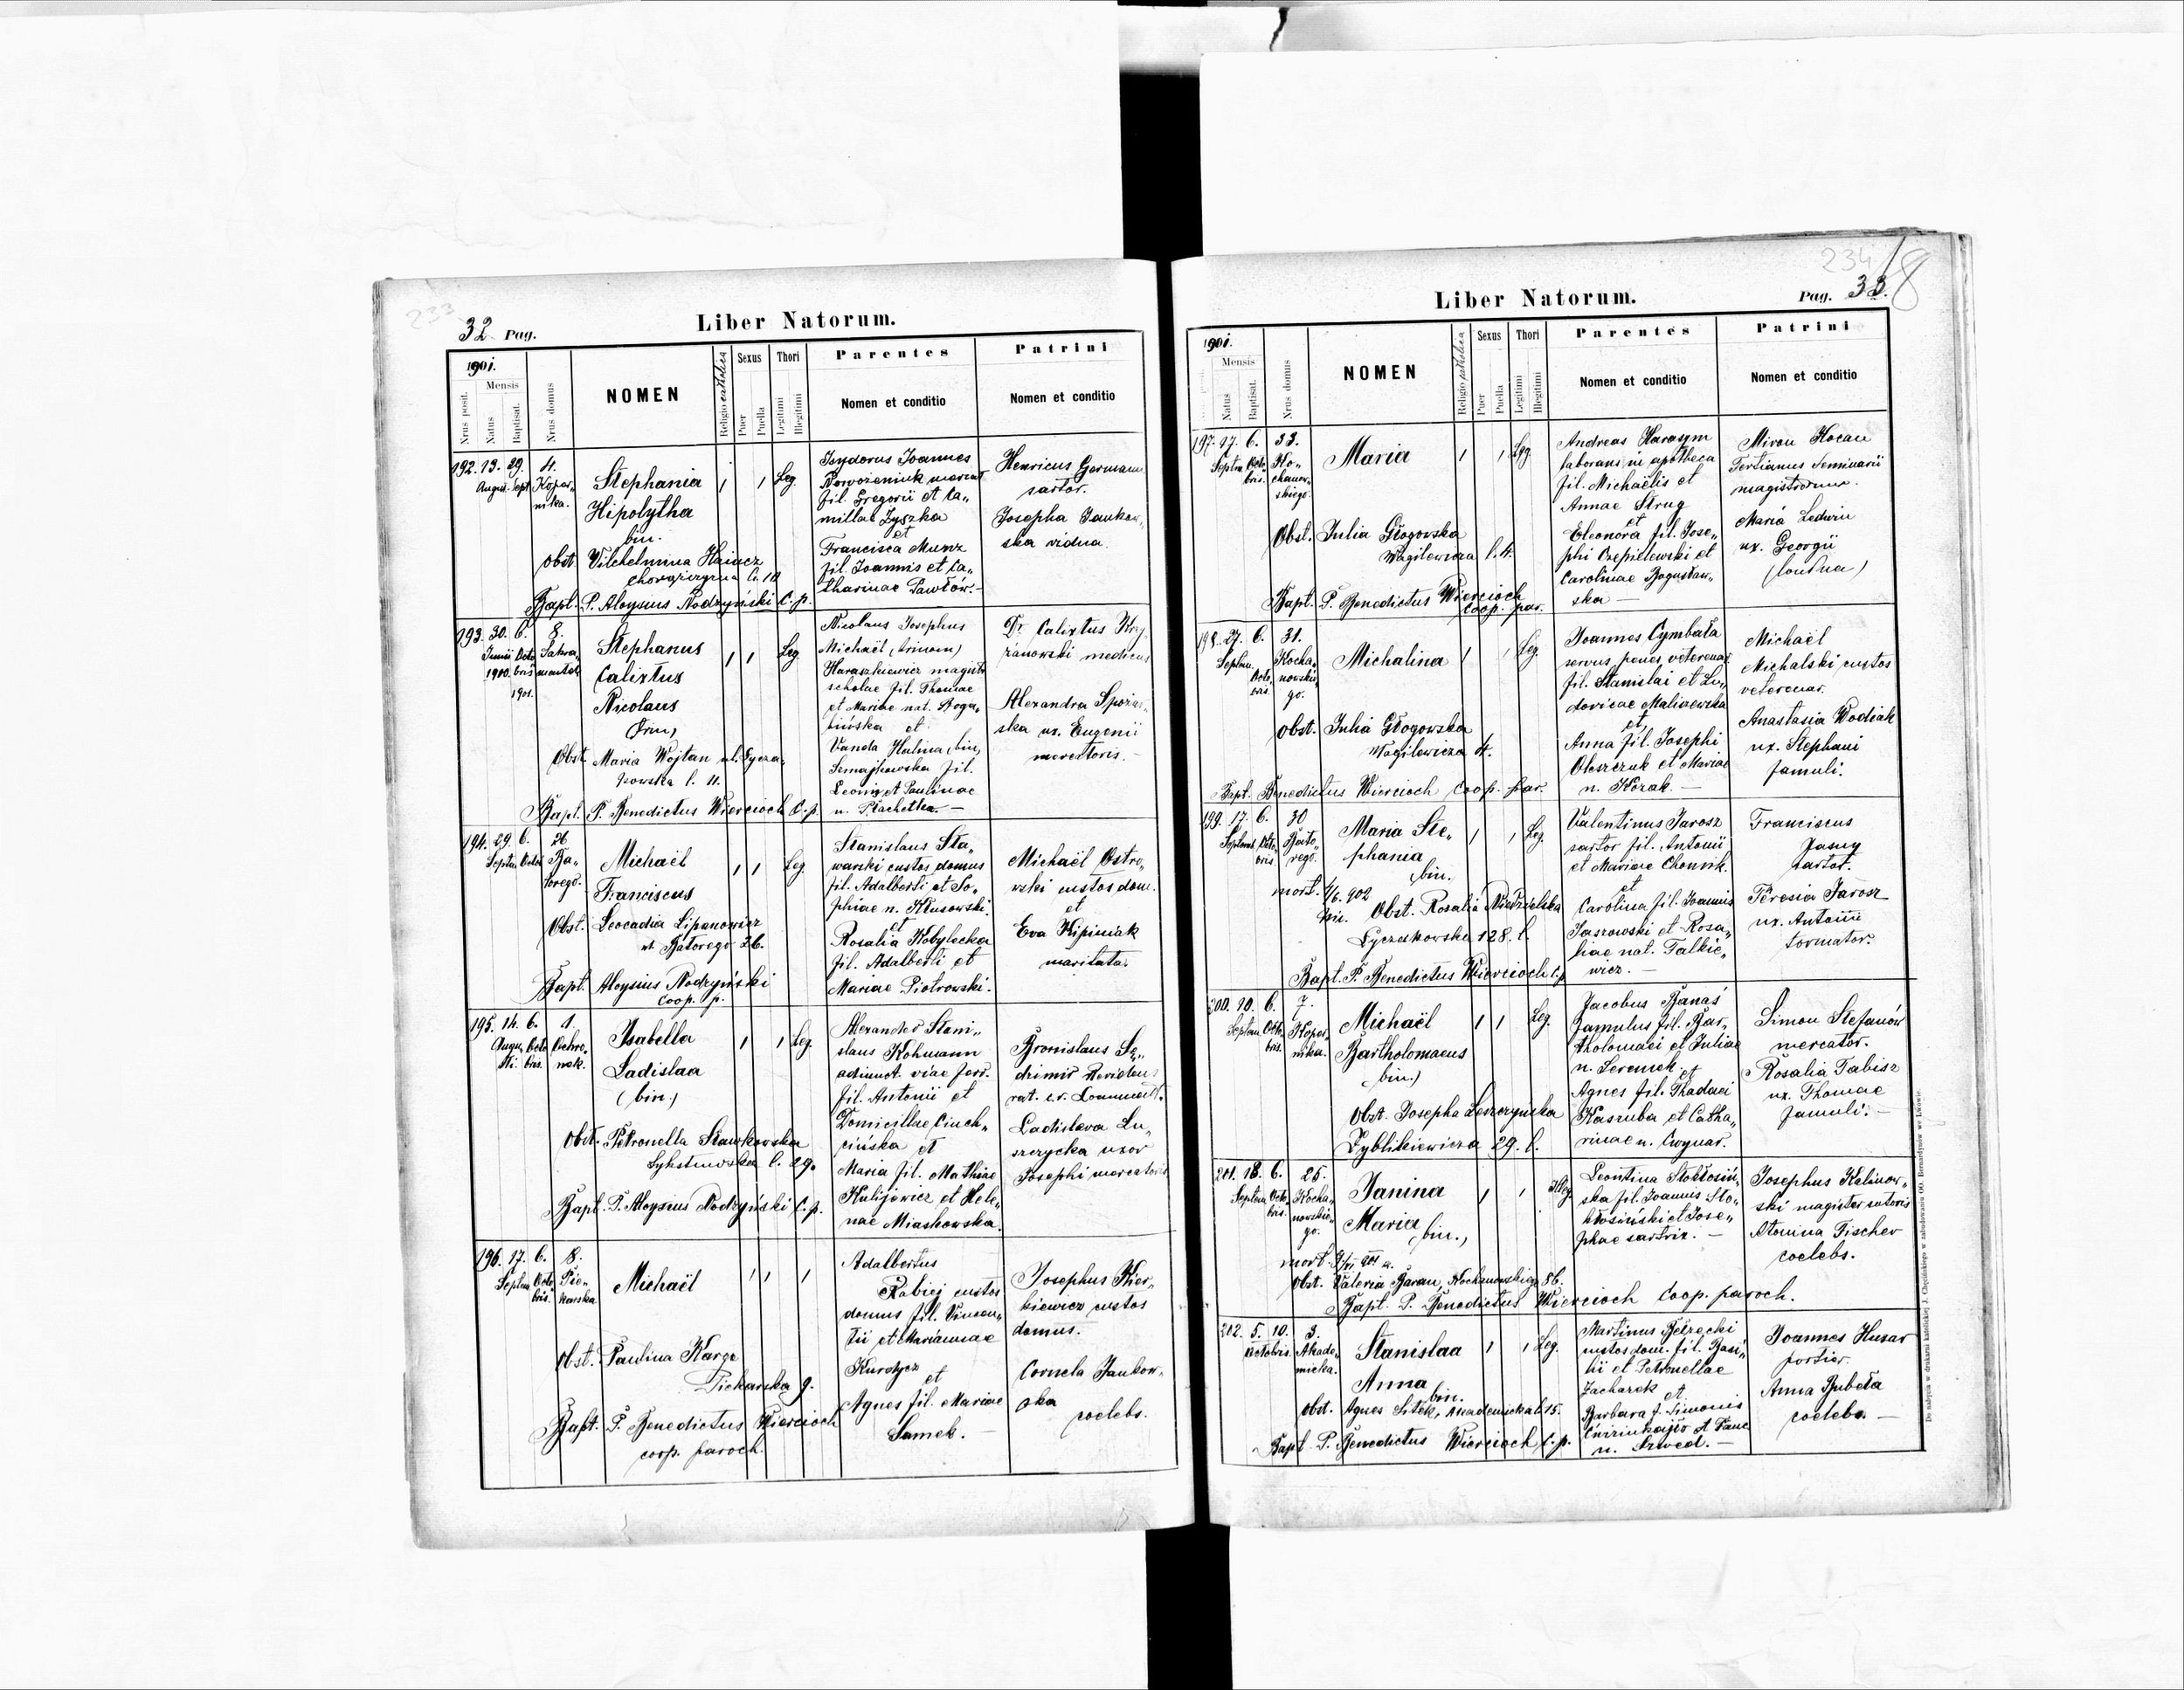 233
32 Pag.
Liber Natorum.
1901.
Nrus posit.
Mensis
Natus
Baptisat.
Nrus domus
NOMEN
Religio catholica
Sexus
Puer
Puella
Thori
Legitimi
Illegitimi
Parentes
Nomen et conditio
Patrini
Nomen et conditio
192. 13. 29. 4.
August. Sept. Koper-
nika.
Stephania
Hipolytha
bin.
1 1 Leg.
Obst. Vilchelmina
Chorążczyzna l. 10
Bapt. P. Aloysius Nodzyński C. p.
Isydorus Joannes
Noworzeniuk
fil. Gregorii et Ca-
millae Zyszka
et
Francisca Munz
fil. Joannis et Ca-
tharinae Pawłów.-
Henricus Germann
sartor.
Josepha Jankow-
ska vidua.
193. 30. 6. 8.
Junii Octo Sakra-
1900. bris mentek
1901.
Stephanus
Calixtus
Nicolaus
(trin)
1 1 Leg
Obst. Maria Wojtan ul. Łycza-
kowska l. 11.
Bapt. P. Benedictus Wiercioch C. p.
Nicolaus Josephus
Michaël (trinom)
Haraszkiewicz magistr
scholae fil. Thomae
et Mariae nat. Boga-
bińska et
Vanda Halina (bin)
fil.
Leonis et Paulinae
n. Płachetka.-
Dr. Calixtus Krzy-
żanowski medicus
Alexandra
ska ux. Eugenii
mercatoris.-
194. 29. 6. 26
Septem Octob Ba-
torego.
Michaël
Franciscus
1 1 Leg
Obst. Leocadia Lipanowicz
ul Batorego 26.
Bapt. Aloysius Nodzyński
Coop. p.
Stanislaus Sta-
warski custos domus
fil. Adalberti et So-
phiae n. Kłusowski.
et
Rosalia Kobylecka
fil. Adalberti et
Mariae Piotrowski.
Michaël Ostro-
wski custos dom.
et
Eva Kipiniak
maritata.
195. 14. 6. 1.
Augu- Octo Ochro-
sti. bris. nek.
Ysabella
Ladislaa
(bin.)
1 1 Leg.
Obst. Petronella Stawkowska
l. 29.
Bapt. P. Aloysius Nodzyński C. p.
Alexander Stani-
slaus Kohmann
adiunct. viae ferr.
fil. Antonii et
Domicillae Ciuch-
cińska et
Maria fil. Mathiae
Kulijewicz et Hele-
nae Miashowska.
Bronislaus
Ladislava Lu-
szczycka uxor
Josephi mercatoris
196. 17. 6. 8.
Septem Octo Pie-
bris. karska
Michaël
1 1 1
Obst. Paulina Karge
Piekarska 9.
Bapt. P. Benedictus Wiercioch
coop. paroch.
Adalbertus
Rabiej custos
domus fil. Vincen-
tii et Mariannae
Kurdycz
et
Agnes fil. Mariae
Samek.-
Josephus Kier-
biewicz custos
domus.
Cornela Jankow-
ska
coelebs.
234
18
Liber Natorum.
Pag. 33.
1901.
Mensis
Natus
Baptisat.
Nrus domus
NOMEN
Religio catholica
Sexus
Puer
Puella
Thori
Legitimi
Illegitimi
Parentes
Nomen et conditio
Patrini
Nomen et conditio
197. 27. 6. 33.
Septem Octo- Ko-
bris. chanow-
skiego.
Maria
1 1 Leg.
Obst. Julia Głogowska
Wagilewicza l. 4.
Bapt. P. Benedictus Wiercioch
Coop. par.
Andreas Harasym
laborans in apotheca
fil. Michaëlis et
Annae Strug
et
Eleonora fil. Jose-
phi Czepielewski et
Carolinae Bogusław-
ska-
Miron Kocan
Tertianus Seminarii
magistrorum.
Maria Ledwin
ux. Georgii
198. 27. 6. 31.
Septem. Octo- Kocha-
bris. nowskie-
go.
Michalina
1 1 Leg.
Obst. Julia Głogowska
Wagilewicza 4.
Bapt. Benedictus Wiercioch Coop. par.
Joannes Cymbała
servus penes veterenar.
fil. Stanislai et Lu-
dovicae Malinewska
et
Anna fil. Josephi
Oleszczuk et Mariae
n. Kozak.-
Michaël
Michalski custos
veterenar.
Anastasia Wodiak
ux. Stephani
famuli.
199. 17. 6. 30
Septemb. Octo- Bato-
bris rego.
Maria Ste-
phania
bin.
1 1 Leg.
mort. 4/6. 902
Obst. Rosalia Niedzielska
Łyczakowska 128. l.
Bapt. P. Benedictus Wiercioch C. p.
Valentinus Jarosz
sartor fil. Antonii
et Mariae Chomik.
et
Carolina fil. Joannis
Jasrowski et Rosa-
liae nat. Falkie-
wicz.-
Franciscus
Jasny
sartor.
Teresia Jarosz
ux. Antonii
tormator.
200. 10. 6. 7.
Septem Octo- Koper-
bris. nika.
Michaël
Bartholomaeus
(bin.)
1 1 Leg.
Obst. Josepha Leszczyńska
Zyblikiewicza 29. l.
Jacobus Banaś
famulus fil. Bar-
tholomaei et Juliae
n. Seremek et
Agnes fil. Thadaei
Kaszuba et Catha-
rinae n. Cwynar.
Simon Stefanów
mercator.
Rosalia Tabisz
ux. Thomae
famuli.-
201. 18. 6. 25.
Septem Octo- Kocha-
bris. nowskie-
go.
Janina
Maria
(bin.)
1 1 Illeg.
mort.
Obst. Valeria Baran, Kochanowskiego 86.
Bapt. P. Benedictus Wiercioch Coop. paroch.
Leontina Stokłosiń-
ska fil. Joannis Sto-
kłosiński et Jose-
phae sartrix.-
Josephus Kalinow-
ski magister sutoris
Antonina Fischer
coelebs.
202. 5. 10. 3.
Octobris. Akade-
micka.
Stanislaa
Anna
bin.
1 1 Leg.
obst. Agnes Sitek, Akademicka l. 15.
Bapt. P. Benedictus Wiercioch C. p.
Martinus Bełzecki
custos dom. fil. Basi-
lii et Petronellae
Zacharek et
Barbara f. Simonis
et
n. Szwed.-
Joannes Husar
portier.
Anna Bubela
coelebs.-
Do nabycia w drukarni katolickiej J. Chęcińskiego w zabudowaniu OO. Bernardynów we Lwowie.